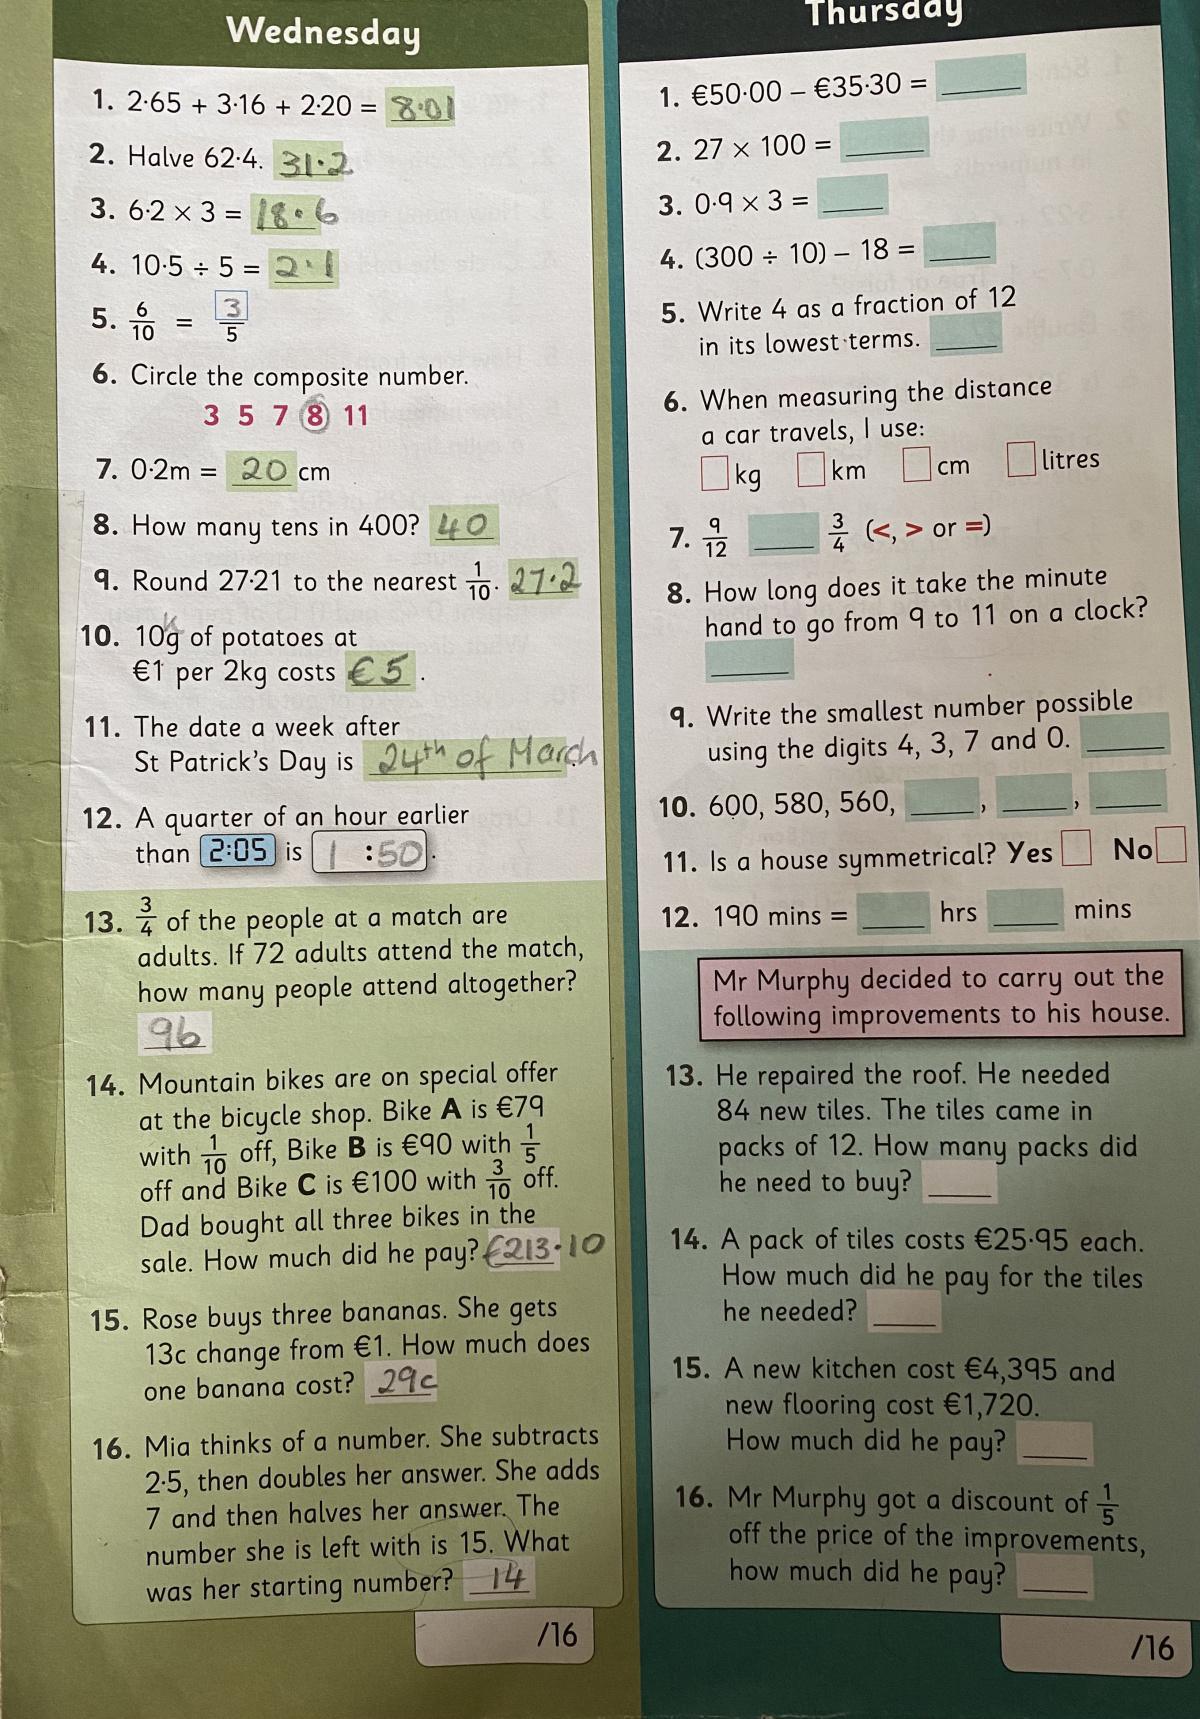 Wednesday
1. 2·65 + 3·16 + 2·20 = 8·01
2. Halve 62·4. 31·2
3. 6·2 × 3 = 18·6
4. 10·5 ÷ 5 = 2·1
5. 6/10 = 3/5
6. Circle the composite number.
3 5 7 8 11
7. 0·2m = 20 cm
8. How many tens in 400? 40
9. Round 27·21 to the nearest 1/10. 27·2
10. 10kg of potatoes at
€1 per 2kg costs €5.
11. The date a week after
St Patrick's Day is 24th of March.
12. A quarter of an hour earlier
than 2:05 is 1:50.
13. 3/4 of the people at a match are
adults. If 72 adults attend the match,
how many people attend altogether?
96
14. Mountain bikes are on special offer
at the bicycle shop. Bike A is €79
with 1/10 off, Bike B is €90 with 1/5
off and Bike C is €100 with 3/10 off.
Dad bought all three bikes in the
sale. How much did he pay? €213·10
15. Rose buys three bananas. She gets
13c change from €1. How much does
one banana cost? 29c
16. Mia thinks of a number. She subtracts
2·5, then doubles her answer. She adds
7 and then halves her answer. The
number she is left with is 15. What
was her starting number? 14
/16
Thursday
1. €50·00 – €35·30 =
2. 27 × 100 =
3. 0·9 × 3 =
4. (300 ÷ 10) – 18 =
5. Write 4 as a fraction of 12
in its lowest terms.
6. When measuring the distance
a car travels, I use:
kg km cm litres
7. 9/12 3/4 (<, > or =)
8. How long does it take the minute
hand to go from 9 to 11 on a clock?
9. Write the smallest number possible
using the digits 4, 3, 7 and 0.
10. 600, 580, 560, , ,
11. Is a house symmetrical? Yes No
12. 190 mins = hrs mins
Mr Murphy decided to carry out the
following improvements to his house.
13. He repaired the roof. He needed
84 new tiles. The tiles came in
packs of 12. How many packs did
he need to buy?
14. A pack of tiles costs €25·95 each.
How much did he pay for the tiles
he needed?
15. A new kitchen cost €4,395 and
new flooring cost €1,720.
How much did he pay?
16. Mr Murphy got a discount of 1/5
off the price of the improvements,
how much did he pay?
/16